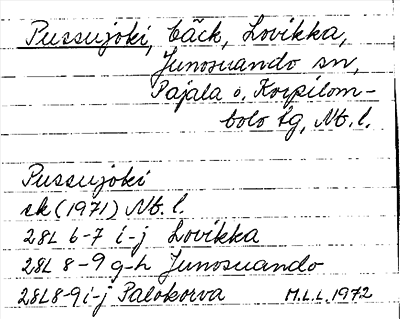 Pussujoki, bäck, Lovikka,
Junosuando sn,
Pajala o. Korpilom-
bolo tg, Nb. l.
Pussujoki
ek (1971) Nb. l.
28L 6-7 i-j Lovikka
28L 8-9 g-h Junosuando
28L8-9i-j Palokorva M.L.L. 1972